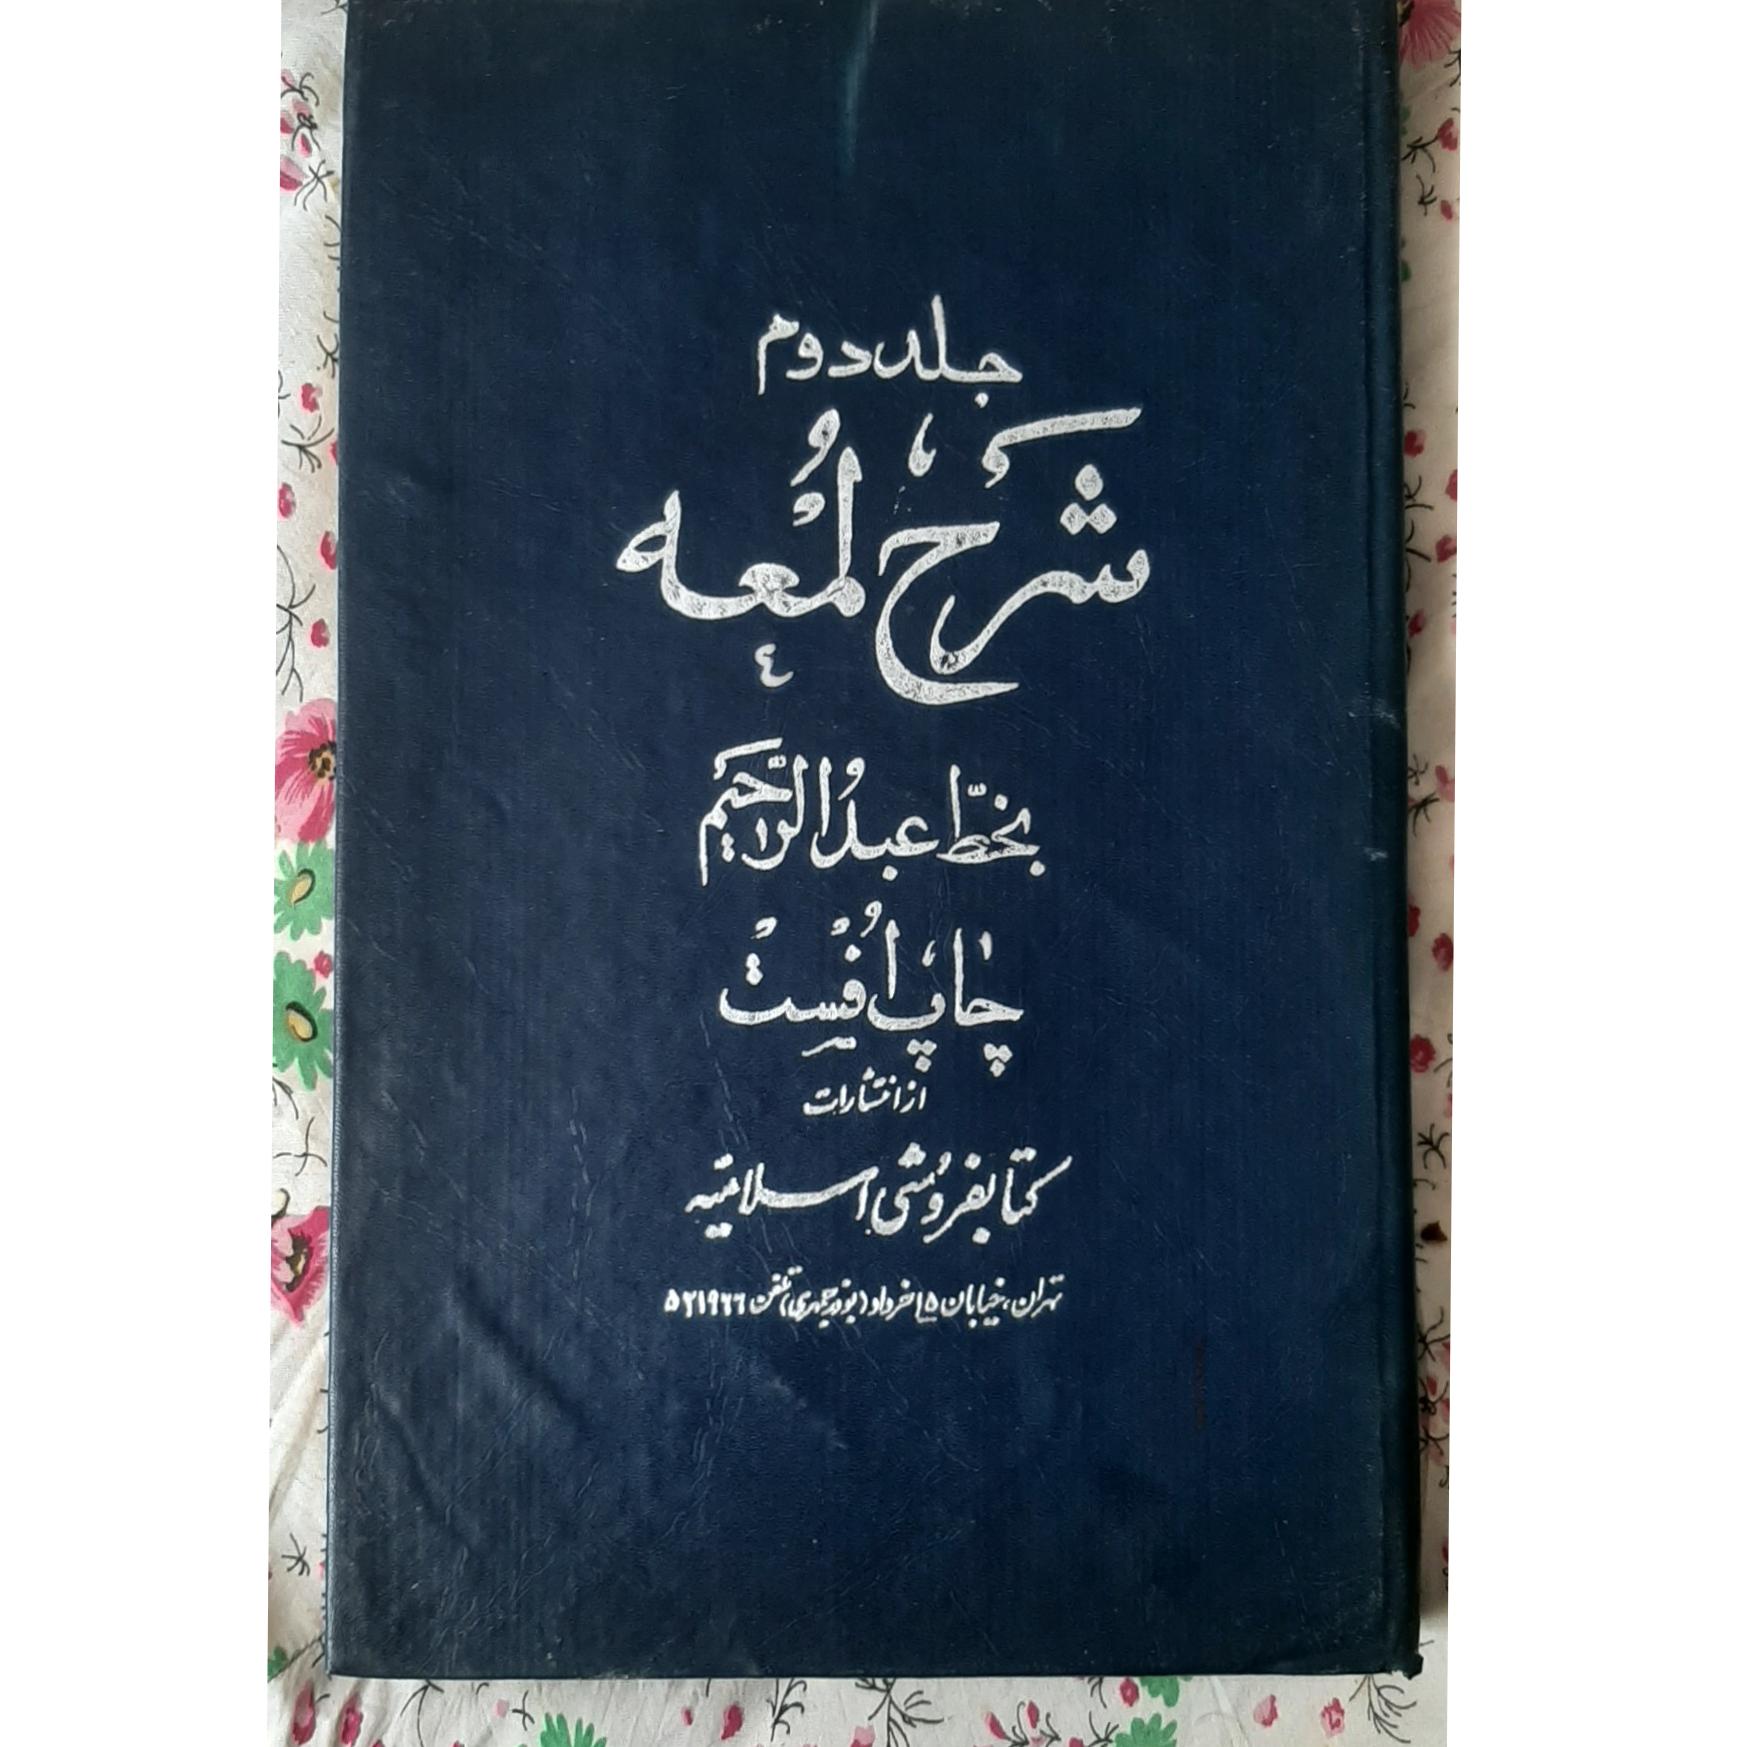 جلد دوم
شَرحِ لُمْعه
بخطّ عبدُالرَّحیم
چاپ اُفْسِتْ
از انتشارات
کتابفروشی اسلامیّه
تهران، خیابان ۱۵ خرداد (بوذرجمهری) تلفن ۵۲۱۹۶۶